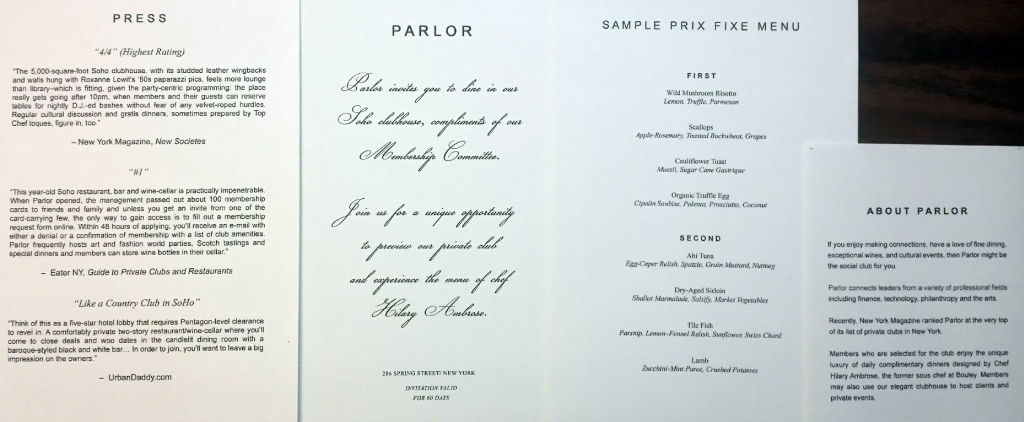 PRESS
"4/4" (Highest Rating)
"The 5,000-square-foot Soho clubhouse, with its studded leather wingbacks
and walls hung with Roxanne Lowit's '80s paparazzi pics, feels more lounge
than library–which is fitting, given the party-centric programming: the place
really gets going after 10pm, when members and their guests can reserve
tables for nightly D.J.-ed bashes without fear of any velvet-roped hurdles.
Regular cultural discussion and gratis dinners, sometimes prepared by Top
Chef toques, figure in, too."
– New York Magazine, New Societes
"#1"
"This year-old Soho restaurant, bar and wine-cellar is practically impenetrable.
When Parlor opened, the management passed out about 100 membership
cards to friends and family and unless you get an invite from one of the
card-carrying few, the only way to gain access is to fill out a membership
request form online. Within 48 hours of applying, you'll receive an e-mail with
either a denial or a confirmation of membership with a list of club amenities.
Parlor frequently hosts art and fashion world parties, Scotch tastings and
special dinners and members can store wine bottles in their cellar."
– Eater NY, Guide to Private Clubs and Restaurants
"Like a Country Club in SoHo"
"Think of this as a five-star hotel lobby that requires Pentagon-level clearance
to revel in. A comfortably private two-story restaurant/wine-cellar where you'll
come to close deals and woo dates in the candlelit dining room with a
baroque-styled black and white bar... In order to join, you'll want to leave a big
impression on the owners."
– UrbanDaddy.com
PARLOR
Parlor invites you to dine in our
Soho clubhouse, compliments of our
Membership Committee.
Join us for a unique opportunity
to preview our private club
and experience the menu of chef
Hilary Ambrose.
286 SPRING STREET/ NEW YORK
INVITATION VALID
FOR 60 DAYS
SAMPLE PRIX FIXE MENU
FIRST
Wild Mushroom Risotto
Lemon, Truffle, Parmesan
Scallops
Apple-Rosemary, Toasted Buckwheat, Grapes
Cauliflower Toast
Muesli, Sugar Cane Gastrique
Organic Truffle Egg
Cipolin Soubise, Polenta, Prosciutto, Coconut
SECOND
Ahi Tuna
Egg-Caper Relish, Spatzle, Grain Mustard, Nutmeg
Dry-Aged Sirloin
Shallot Marmalade, Salsify, Market Vegetables
Tile Fish
Parsnip, Lemon-Fennel Relish, Sunflower, Swiss Chard
Lamb
Zucchini-Mint Puree, Crushed Potatoes
ABOUT PARLOR
If you enjoy making connections, have a love of fine dining,
exceptional wines, and cultural events, then Parlor might be
the social club for you.
Parlor connects leaders from a variety of professional fields
including finance, technology, philanthropy and the arts.
Recently, New York Magazine ranked Parlor at the very top
of its list of private clubs in New York.
Members who are selected for the club enjoy the unique
luxury of daily complimentary dinners designed by Chef
Hilary Ambrose, the former sous chef at Bouley. Members
may also use our elegant clubhouse to host clients and
private events.